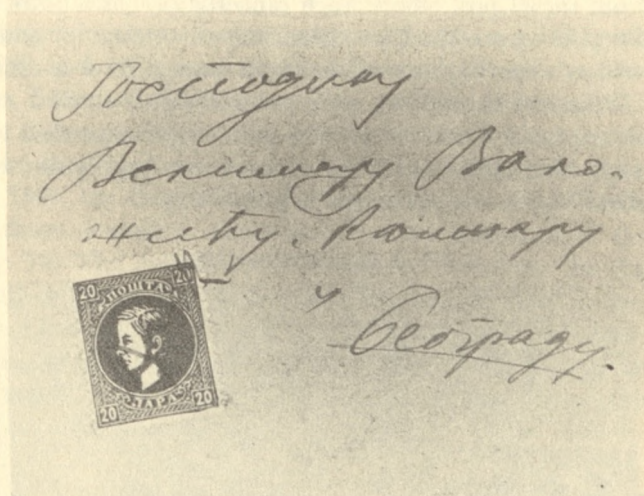 Господину
Велимиру Вало-
жићу. Књижару
у
Београду.
20 ПОШТА 20
20 ПАРА 20